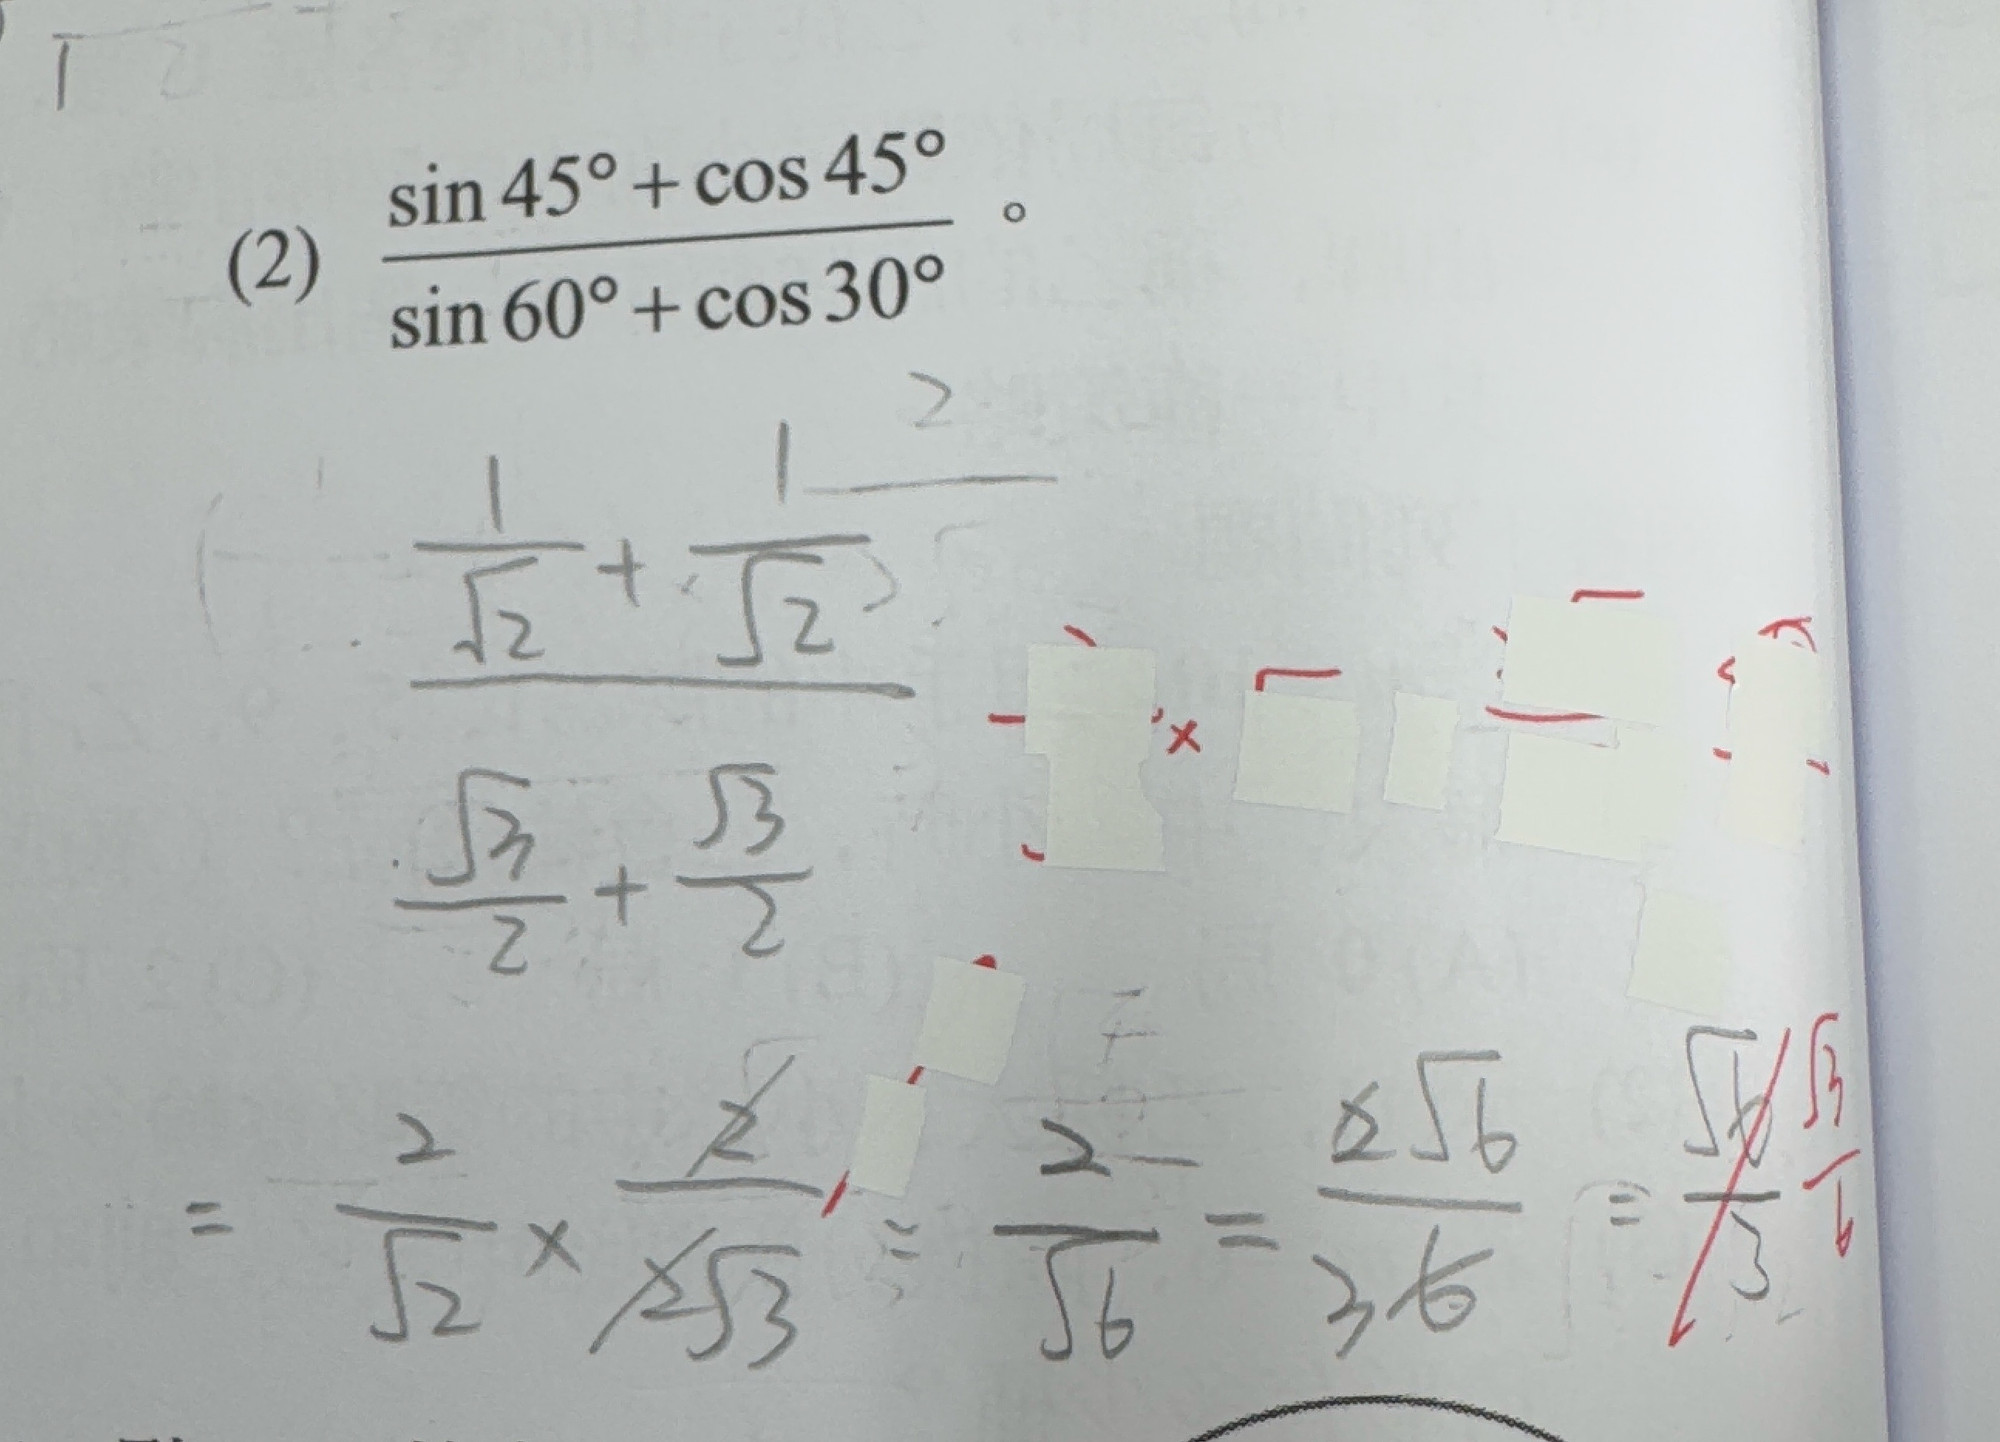 (2) (sin 45° + cos 45°) / (sin 60° + cos 30°) 。
2
1/√2 + 1/√2
√3/2 + √3/2
×
= 2/√2 × 2/2√3 = 2/√6 = 2√6/6 3 = √6/3 √3/6